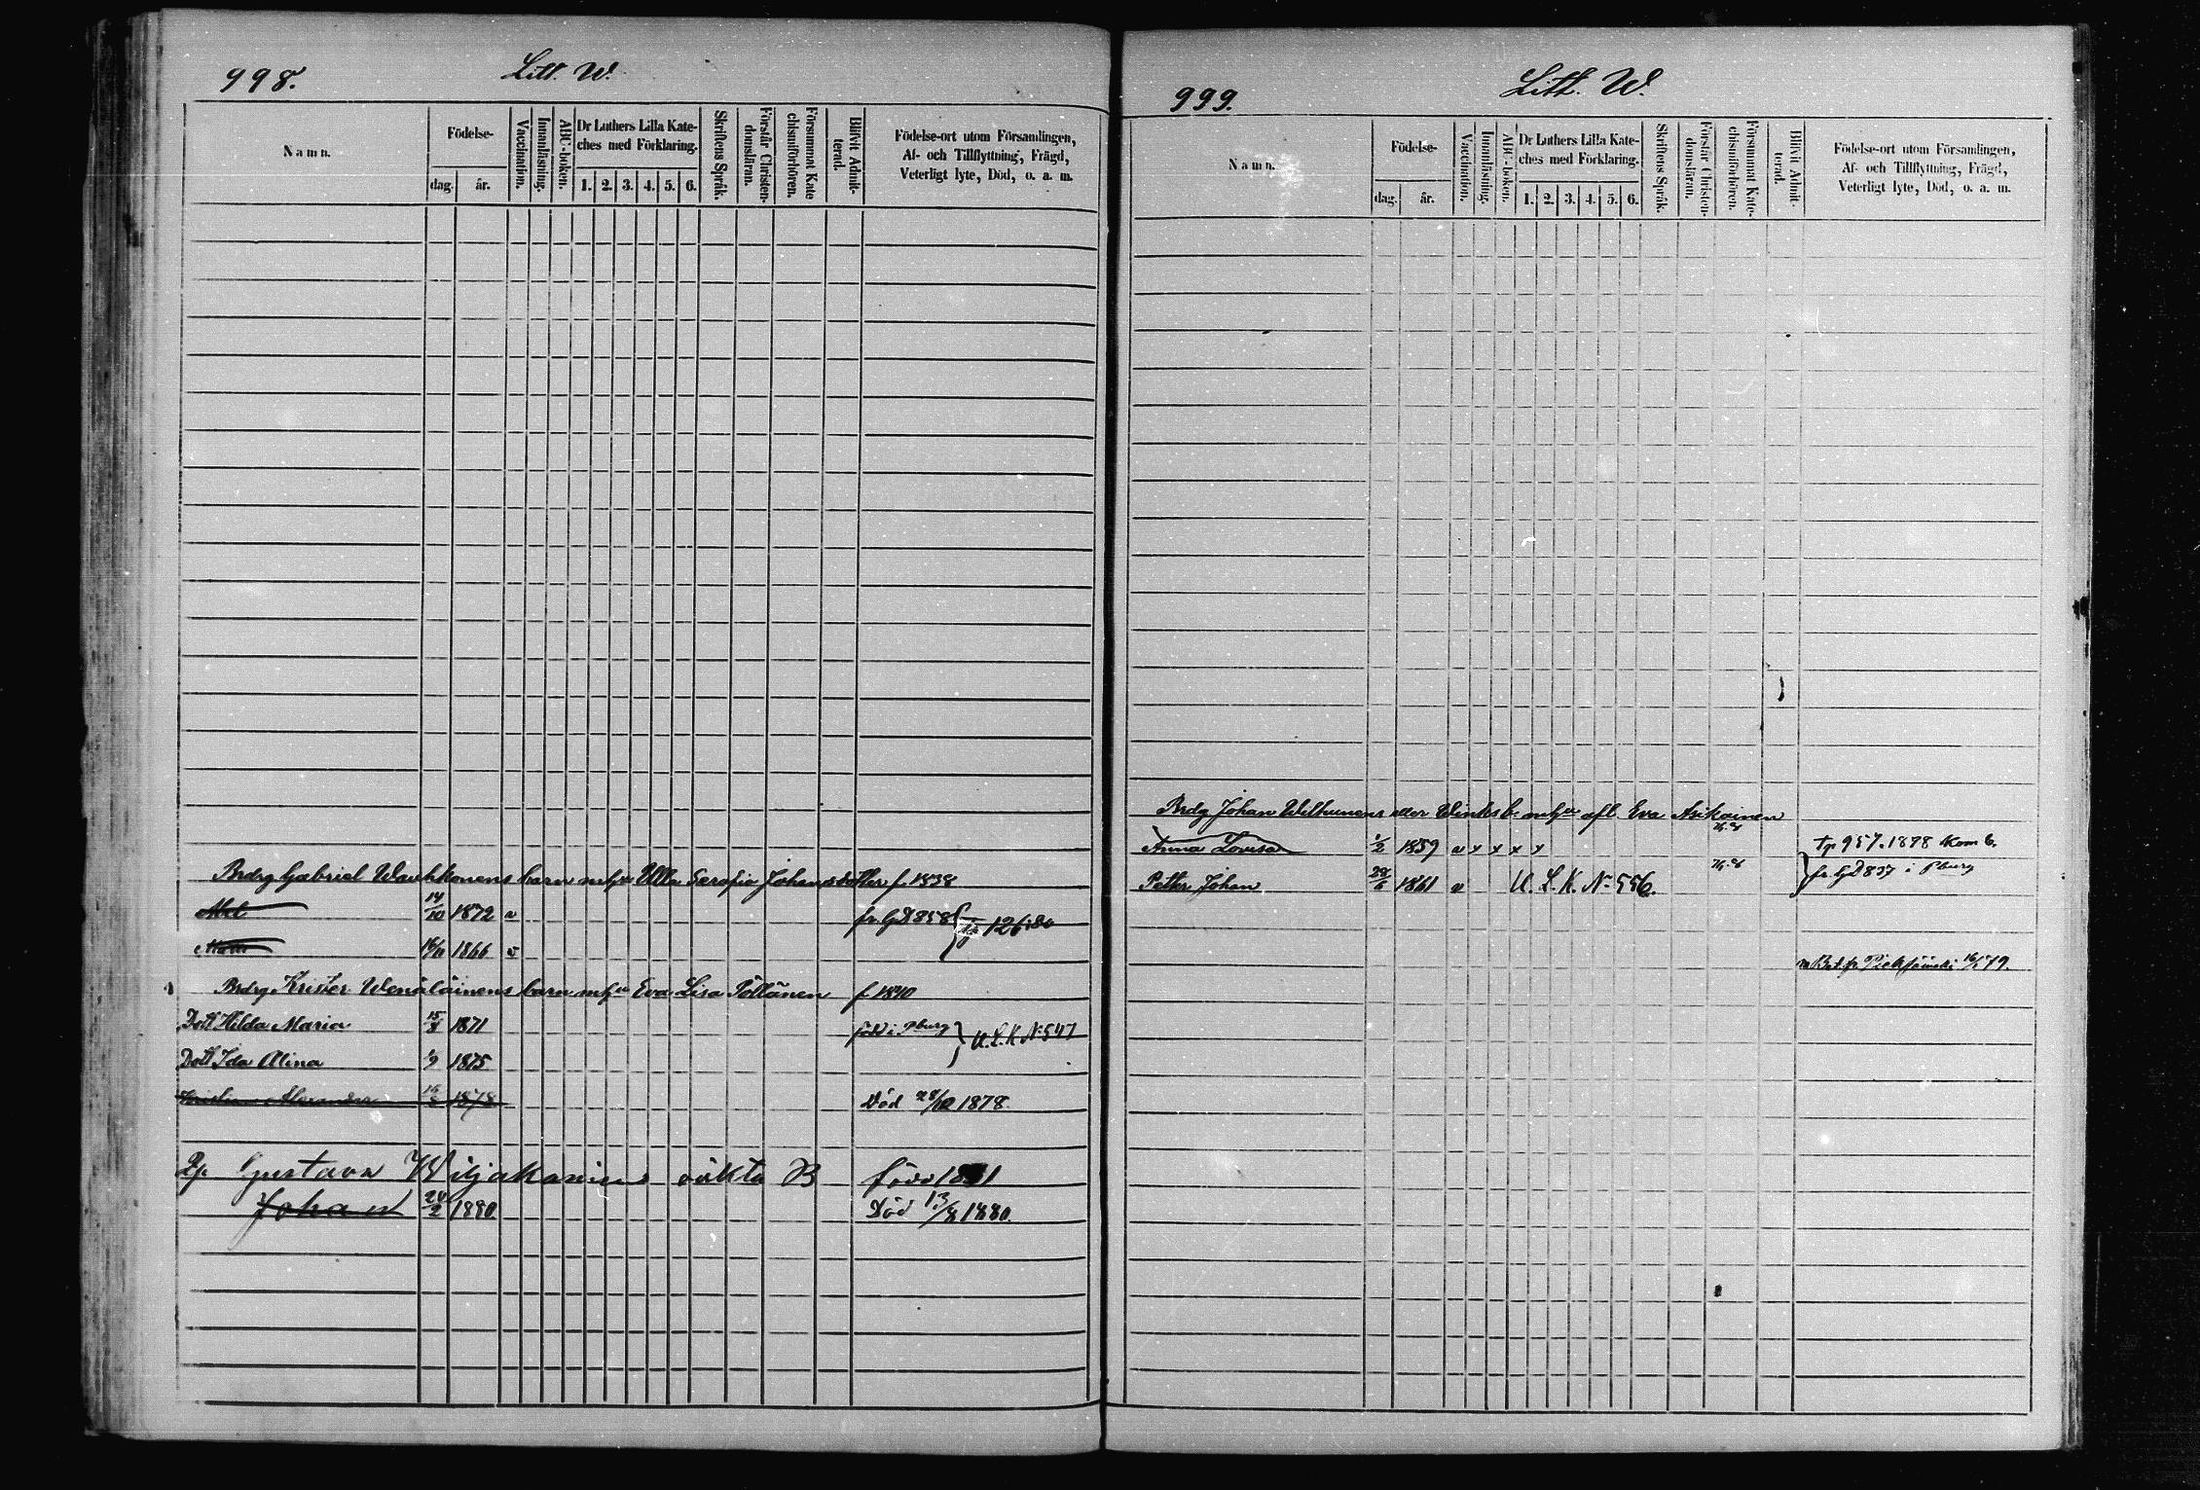 998.
Litt. W.
Namn.
Födelse-
dag.
år.
Vaccination.
Innanläsning.
ABC-boken.
Dr Luthers Lilla Kate-
ches med Förklaring.
1. 2. 3. 4. 5. 6.
Skriftens Språk.
Förstår Christen-
domsläran.
Försummat Kate
chismiförhören.
Blifvit Admit-
terad.
Födelse-ort utom Församlingen,
Af- och Tillflyttning, Frägd,
Veterligt lyte, Död, o. a. m.
Brdrg Gabriel Wauhkonens barn m hu Ulla Serafia Johansdotter f. 1838
Abel 14/10 1872 v fr. Gd 858 126:80
16/11 1866 v
Brdrg Krister Wenäläinens barn m hu Eva Lisa Pöllänen f 1840
Dott Hilda Maria 15/8 1871 född i Pburg U.L.K N:547
Dott Ida Alina 1/9 1875
Alexander 1878 Död 28/10 1878.
Gustava Wiljakainens oäkta B född 1851
Johan 24/2 1880 Död 13/8 1880.
999.
Litt. W.
Namn.
Födelse-
dag.
år.
Vaccination.
Innanläsning.
ABC-boken.
Dr Luthers Lilla Kate-
ches med Förklaring.
1. 2. 3. 4. 5. 6.
Skriftens Språk.
Förstår Christen-
domsläran.
Försummat Kate-
chismiförhören.
Blifvit Admit-
terad.
Födelse-ort utom Församlingen,
Af- och Tillflyttning, Frägd,
Veterligt lyte, Död, o. a. m.
Brdg Johan Wilhunens eller Winks b. m hu afl. Eva Asikainen
Anna Lovisa 1/2 1859 v x x x x Tp 957. 1878 Kom 6.
Petter Johan 29/6 1861 v U. L. K. N:556. fr. Gd 837 i Pburg
fr Pieksämäki 16/1 79.